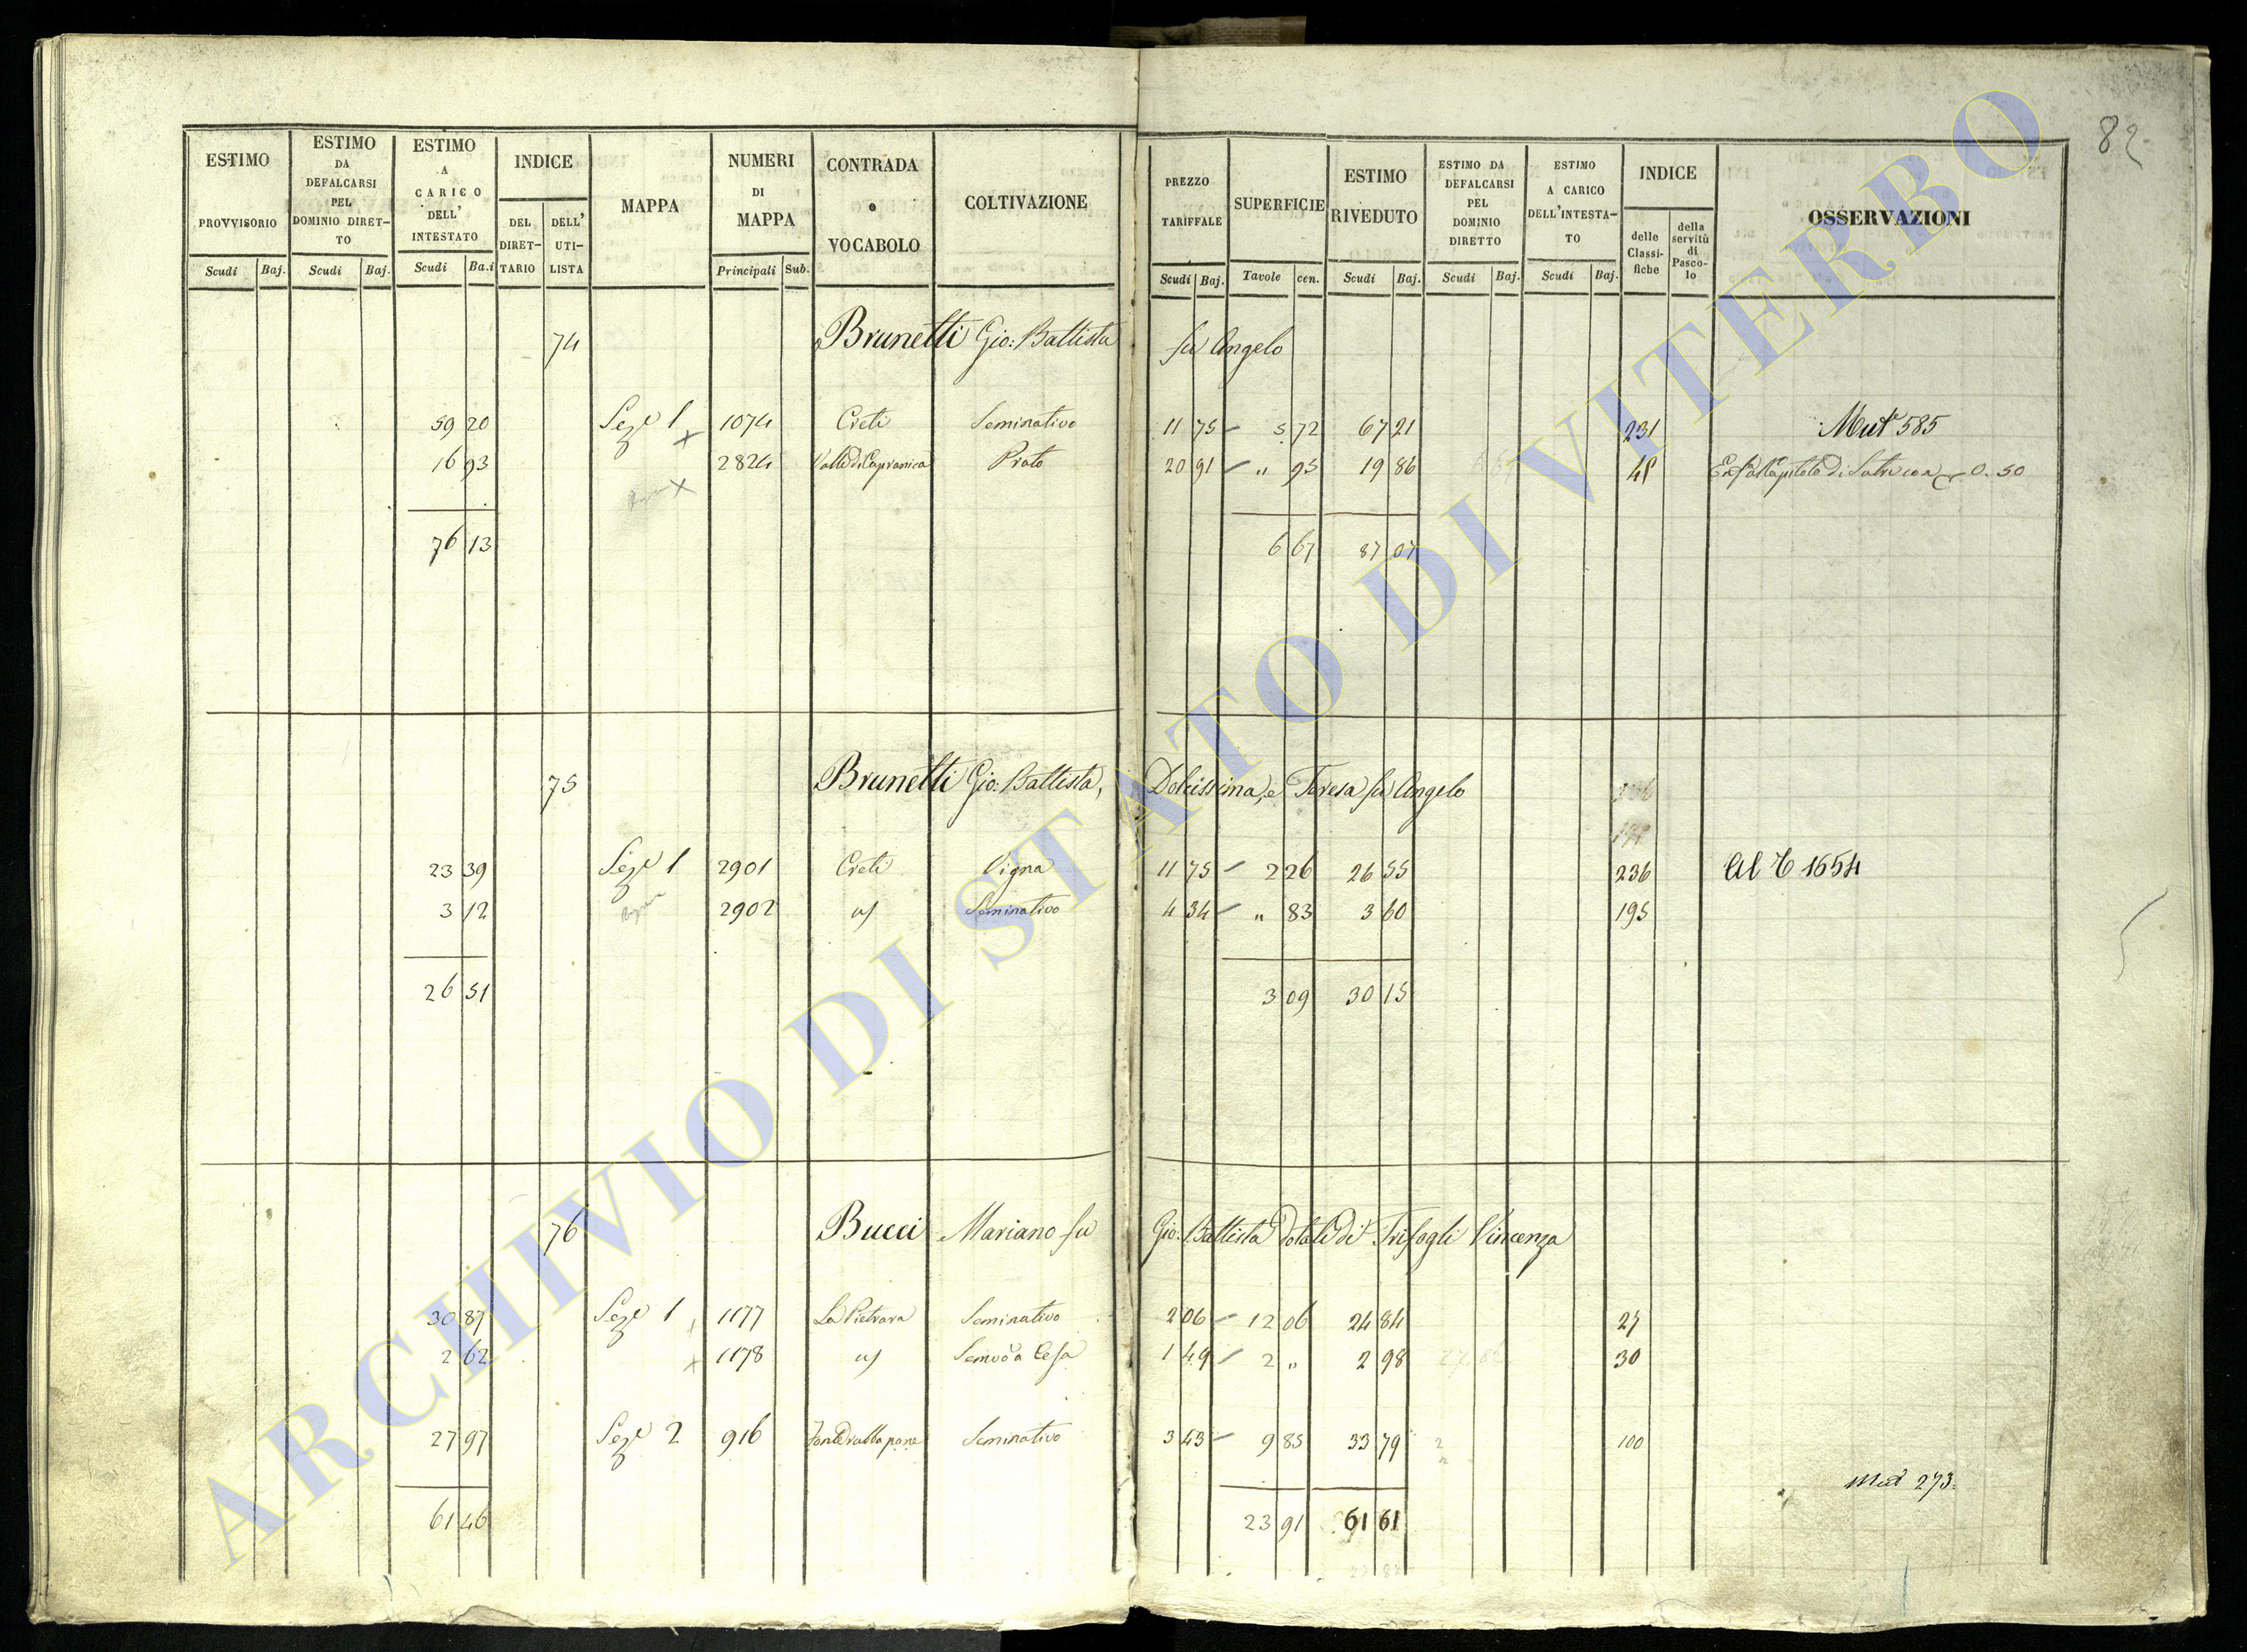 82
ESTIMO PROVVISORIO
Scudi Baj.
ESTIMO DA DEFALCARSI PEL DOMINIO DIRET-TO
Scudi Baj.
ESTIMO A CARICO DELL' INTESTATO
Scudi Ba.i
INDICE
DEL DIRET-TARIO
DELL' UTI-LISTA
MAPPA
NUMERI DI MAPPA
Principali Sub.
CONTRADA e VOCABOLO
COLTIVAZIONE
PREZZO TARIFFALE
Scudi Baj.
SUPERFICIE
Tavole cen.
ESTIMO RIVEDUTO
Scudi Baj.
ESTIMO DA DEFALCARSI PEL DOMINIO DIRETTO
Scudi Baj.
ESTIMO A CARICO DELL'INTESTA-TO
Scudi Baj.
INDICE
delle Classi-fiche
della servitù di Pasco-lo
OSSERVAZIONI
74 Brunetti Gio: Battista fu Angelo
59 20 Seze 1 1074 Creti Seminativo 11 75 5 72 67 21 231 Mut 585
16 93 2824 Valle di Capranica Prato 20 91 " 95 19 86 48 0.50
76 13 6 67 87 07
75 Brunetti Gio: Battista, Dolcissima, e Teresa fu Angelo
23 39 Seze 1 2901 Creti Vigna 11 75 2 26 26 55 236 Al 1654
3 12 2902 Seminativo 4 34 " 83 3 60 195
26 51 3 09 30 15
76 Bucci Mariano fu Gio: Battista dotali di Trifogli Vincenza
30 87 Seze 1 1177 La Pietrara Seminativo 2 06 12 06 24 84 27
2 62 1178 1 49 2 " 2 98 30
27 97 Seze 2 916 Seminativo 3 43 9 85 33 79 100
Mut 273.
61 46 23 91 61 61
ARCHIVIO DI STATO DI VITERBO